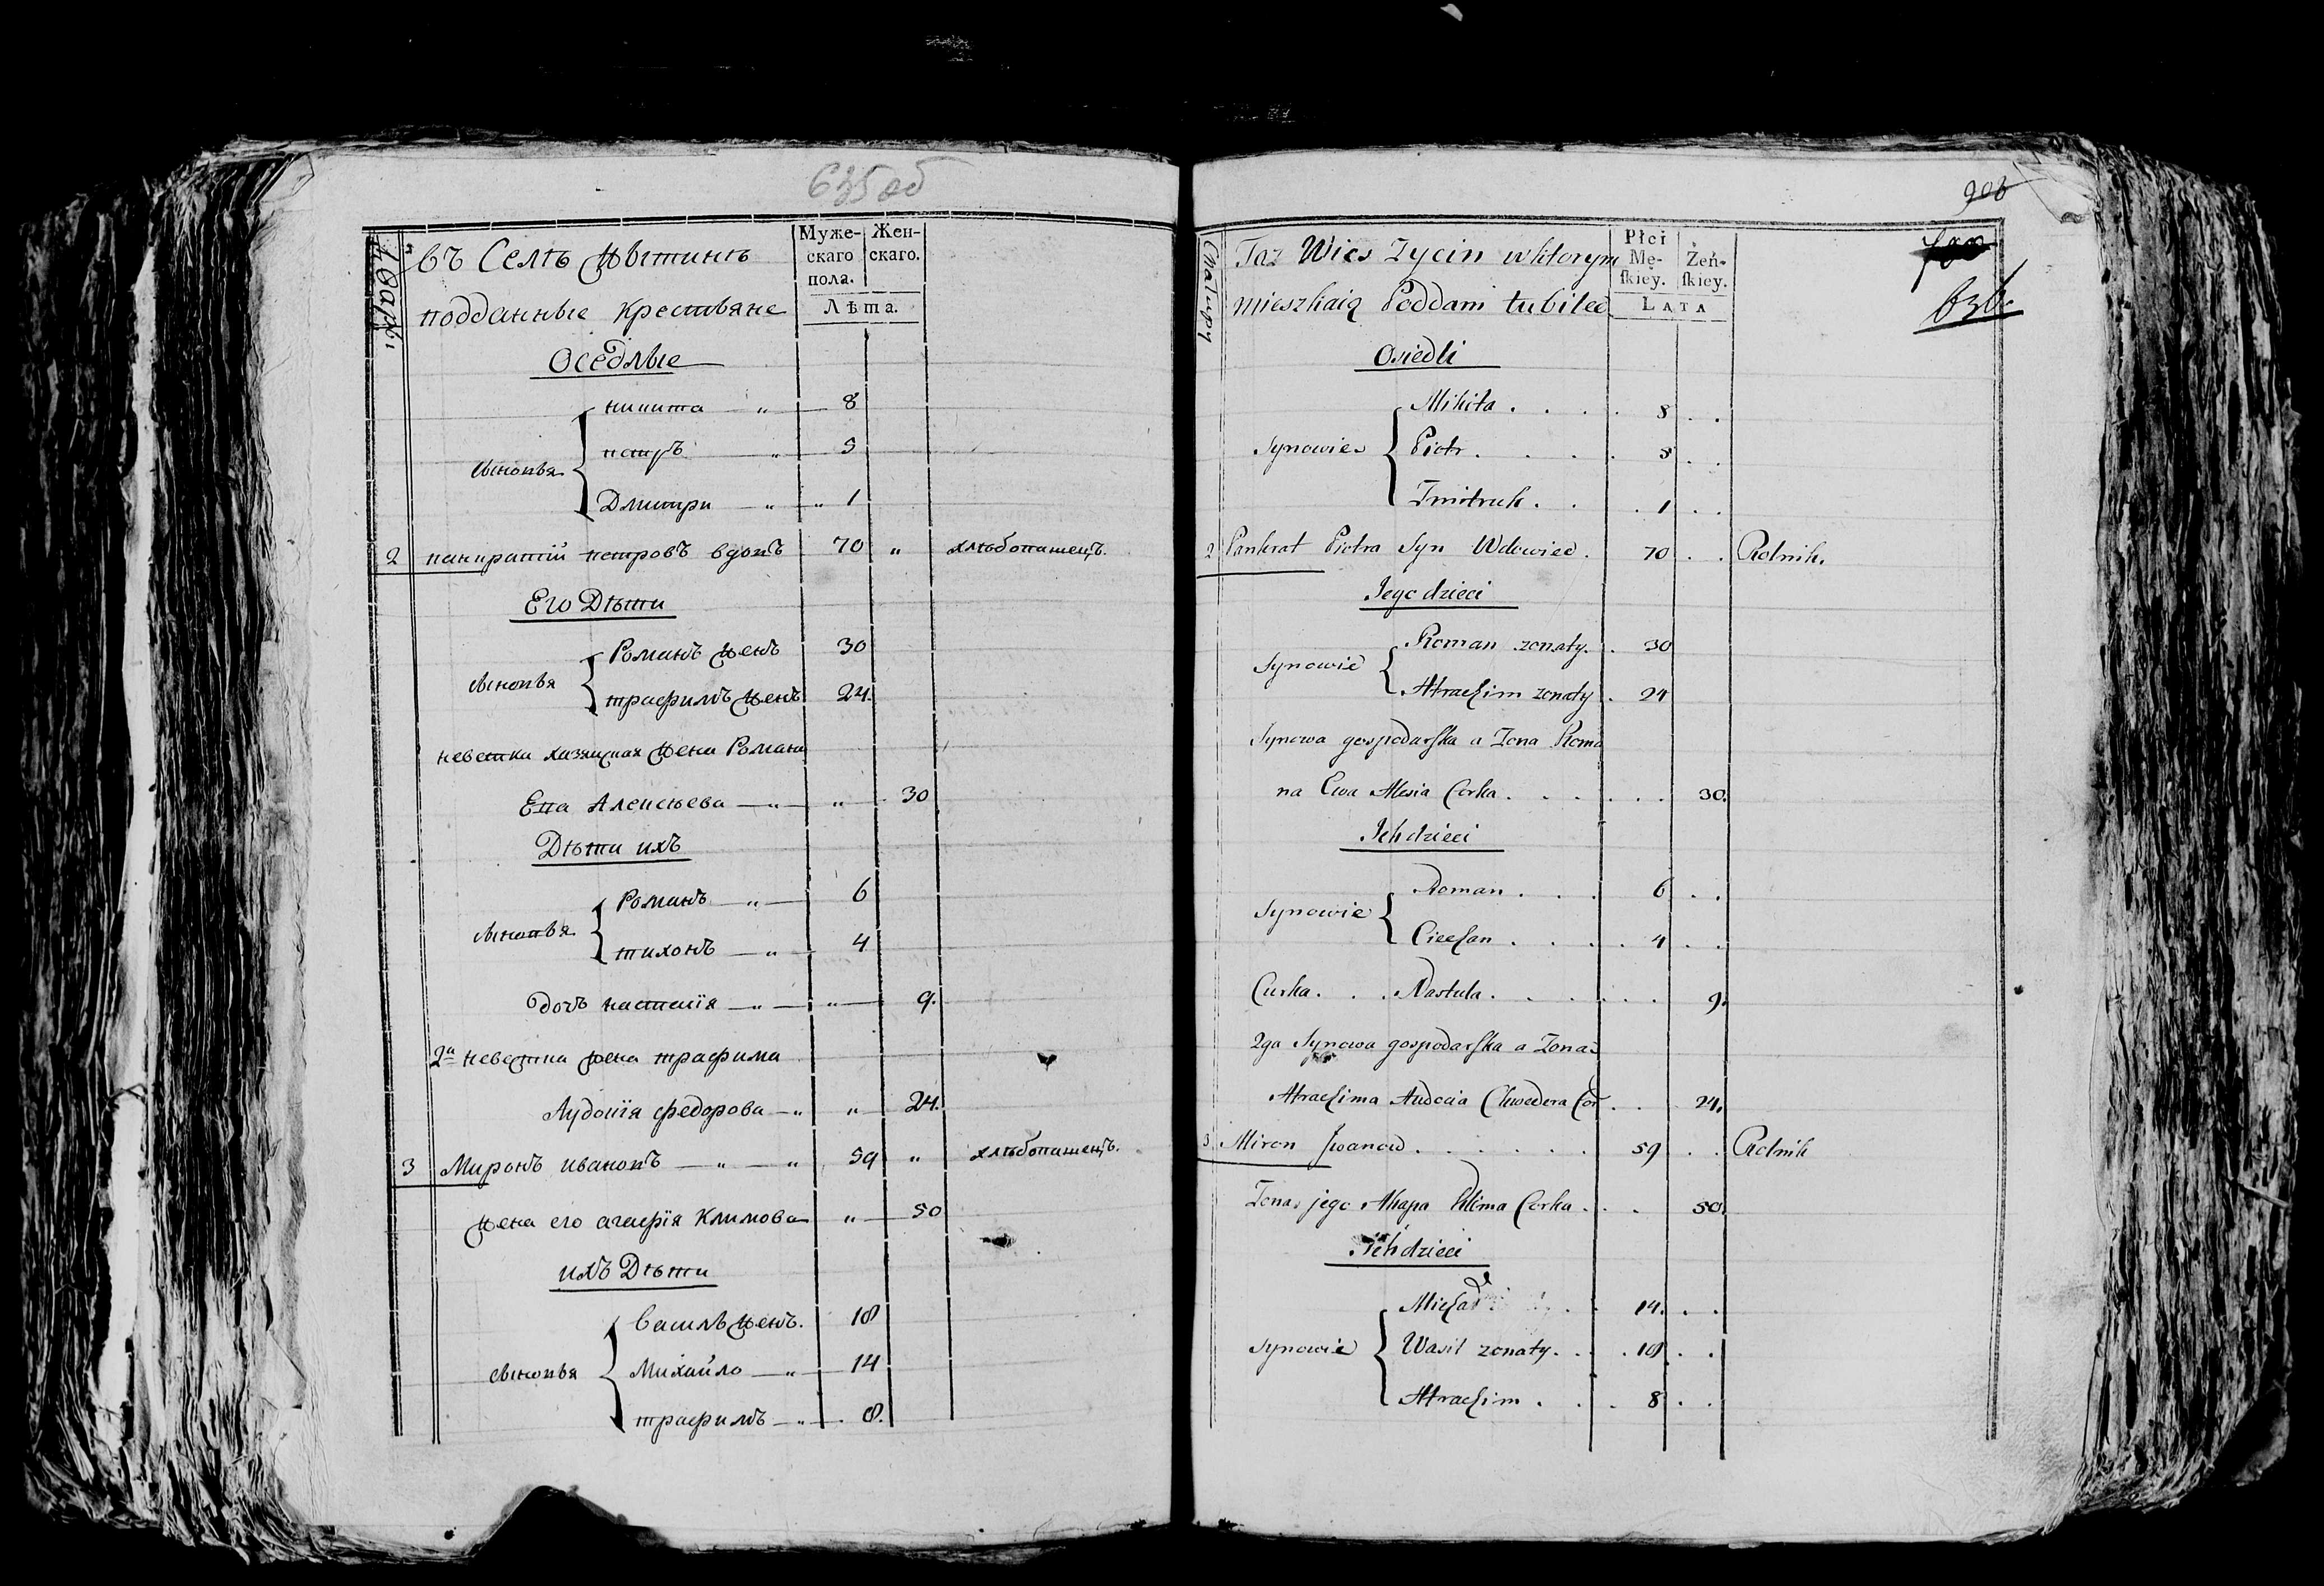 635 об
въ Селѣ Жытинѣ
подданные Крестьяне
Муже-
скаго
пола.
Жен-
скаго.
Лѣта.
Оседлые
сыновья
никита — „ — 8
петръ „ 5
Дмитри — „ — „ 1
2 панкратій петровъ вдовъ 70 „ хлѣбопашецъ.
Его Дѣти
сыновья
Романъ женъ 30
трафимъ женъ 24.
невестка хазяиская жена Романа
Ева Алексѣева — „ — „ 30
Дѣти ихъ
сыновья
Романъ — „ — 6
тихонъ — „ — 4
дочъ настасія — „ — „ — 9.
2а невестка жена трафима
Аудотія федорова — „ „ — 24.
3 Миронъ ивановъ — „ — „ 59 „ хлѣбопашецъ.
жена его агафія Климова „ — 50
ихъ Дѣти
сыновья
василь женъ. 18
Михайло — „ — 14
трафимъ — „ — 8.
906
636
Chałupy
Taż Wieś Zycin w ktorym
mieszkaią Poddani tubilcd
Płci
Mę-
ſkiey.
Żeń-
ſkiey.
LATA
Osiedli
Synowie
Mikita . . . . 8 . .
Piotr . . . . 5 . .
Dmitruk . . . 1 . .
2 Pankrat Piotra Syn Wdowiec . 70 . . Rolnik.
Jego dzieci
Synowie
Roman zonaty . . 30
Atrachim zonaty . 24
Synowa gospodarſka a Zona Roma
na Ewa Alesia Corka . . . . . . 30.
Jch dzieci
Synowie
Roman . . . 6 . .
Ciechan . . . . 4 . .
Curka . . . Nastula . . . . . . 9.
2ga Synowa gospodarſka a Zona
Atrachima Audocia Chwedera Cor . . 24.
3 Miron Jwanow . . . . . . 59 . . Rolnik
Zona jego Ahapa Klima Corka . . . 50.
Jch dzieci
Synowie
Michał . . 14. . .
Wasil zonaty . . . 18 . .
Atrachim . . . 8 . .